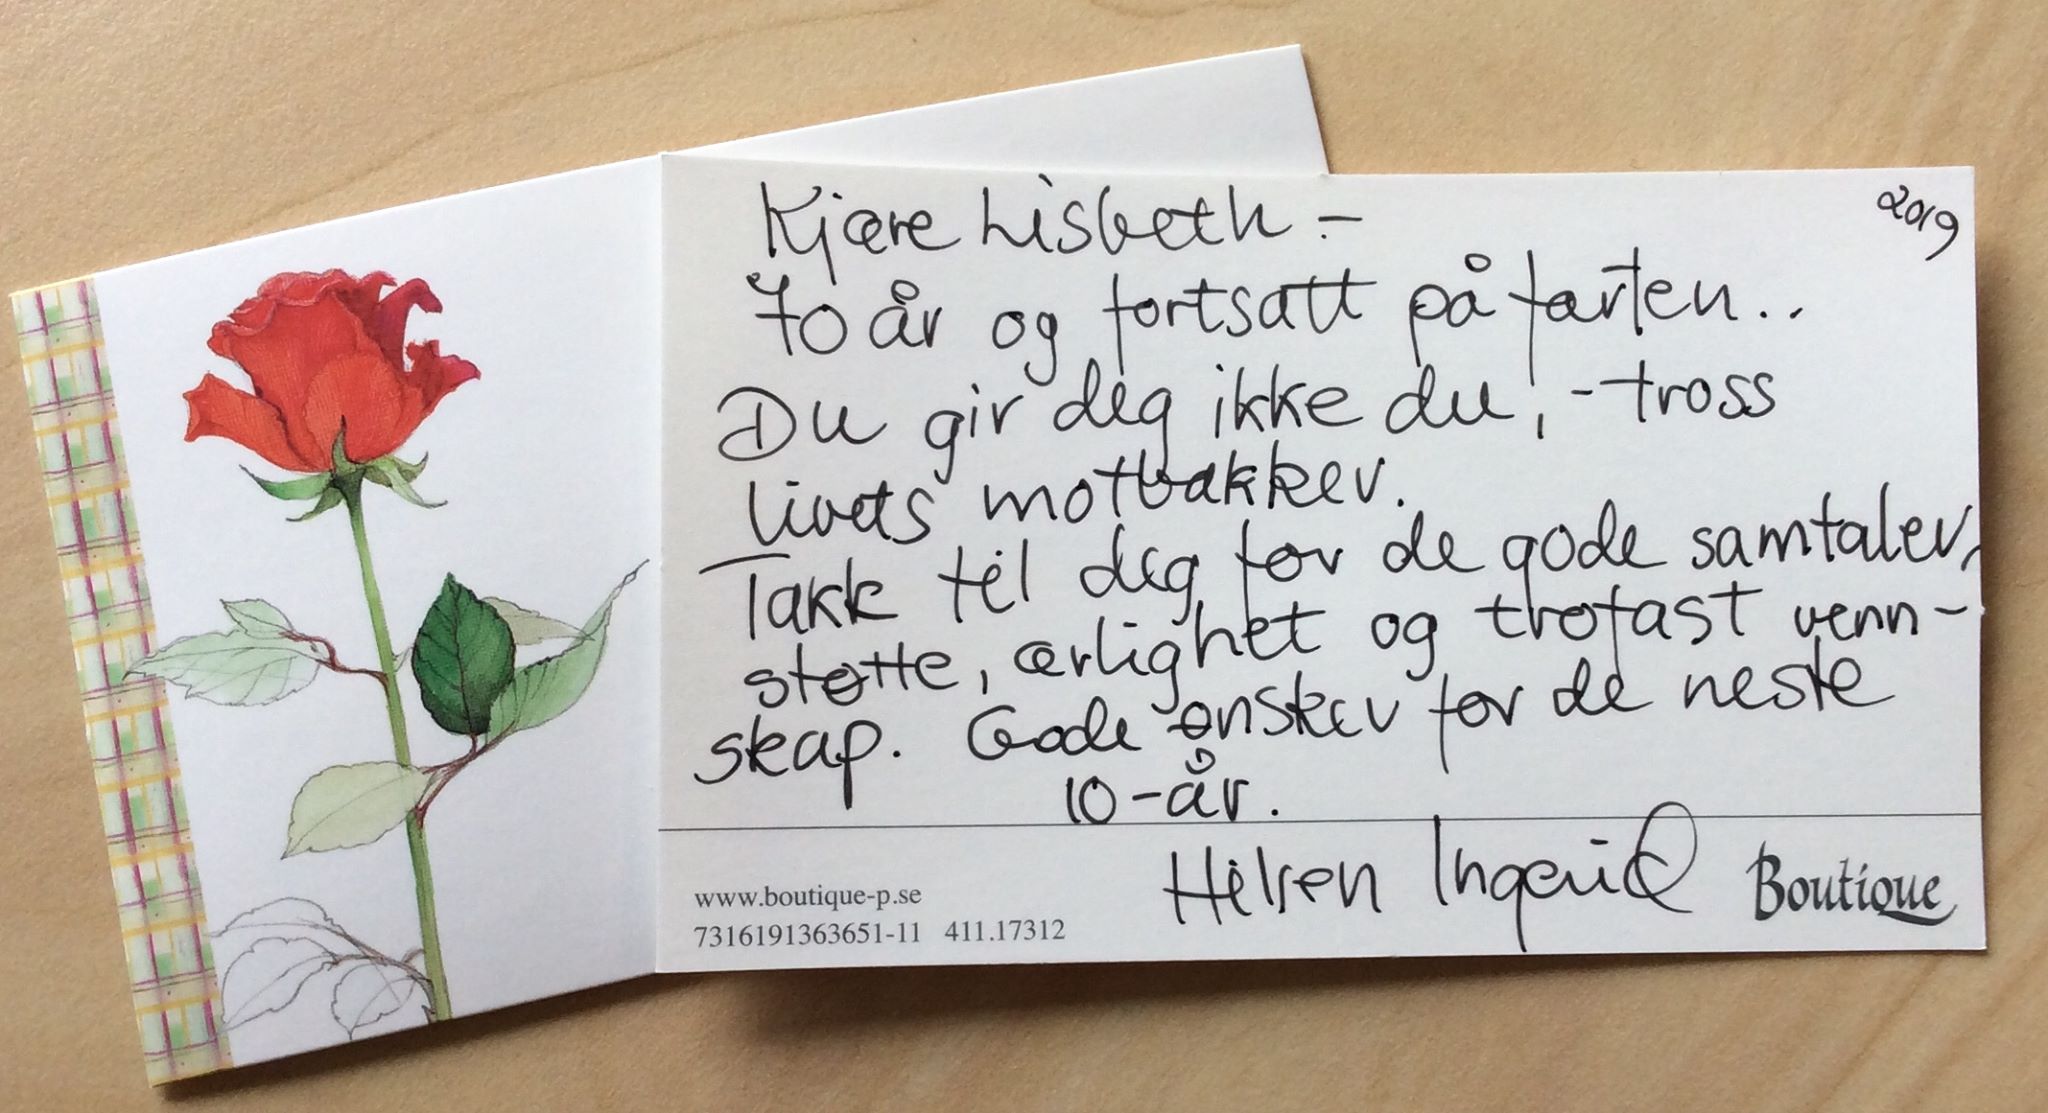 2019
Kjære Lisbeth -
70 år og fortsatt på farten..
Du gir deg ikke du, - tross
livets motbakker.
Takk til deg for de gode samtaler,
støtte, ærlighet og trofast venn-
skap. Gode ønsker for de neste
10-år.
Hilsen Ingerid
www.boutique-p.se
7316191363651-11 411.17312
Boutique